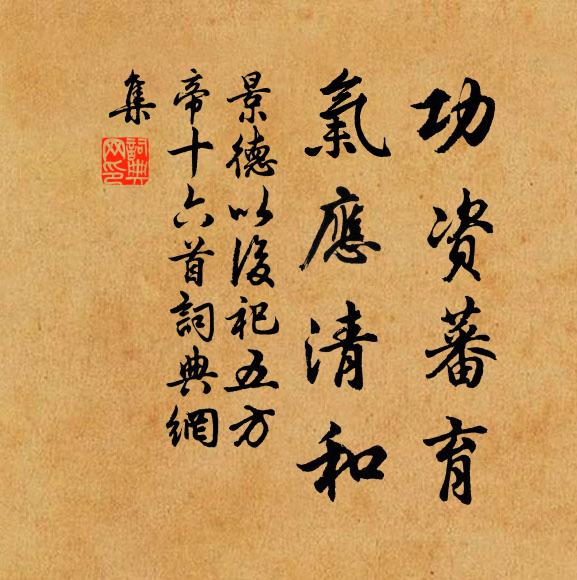 功資蕃育
氣應清和
景德以後祀五方
帝十六首詞典網
集
詞典網印